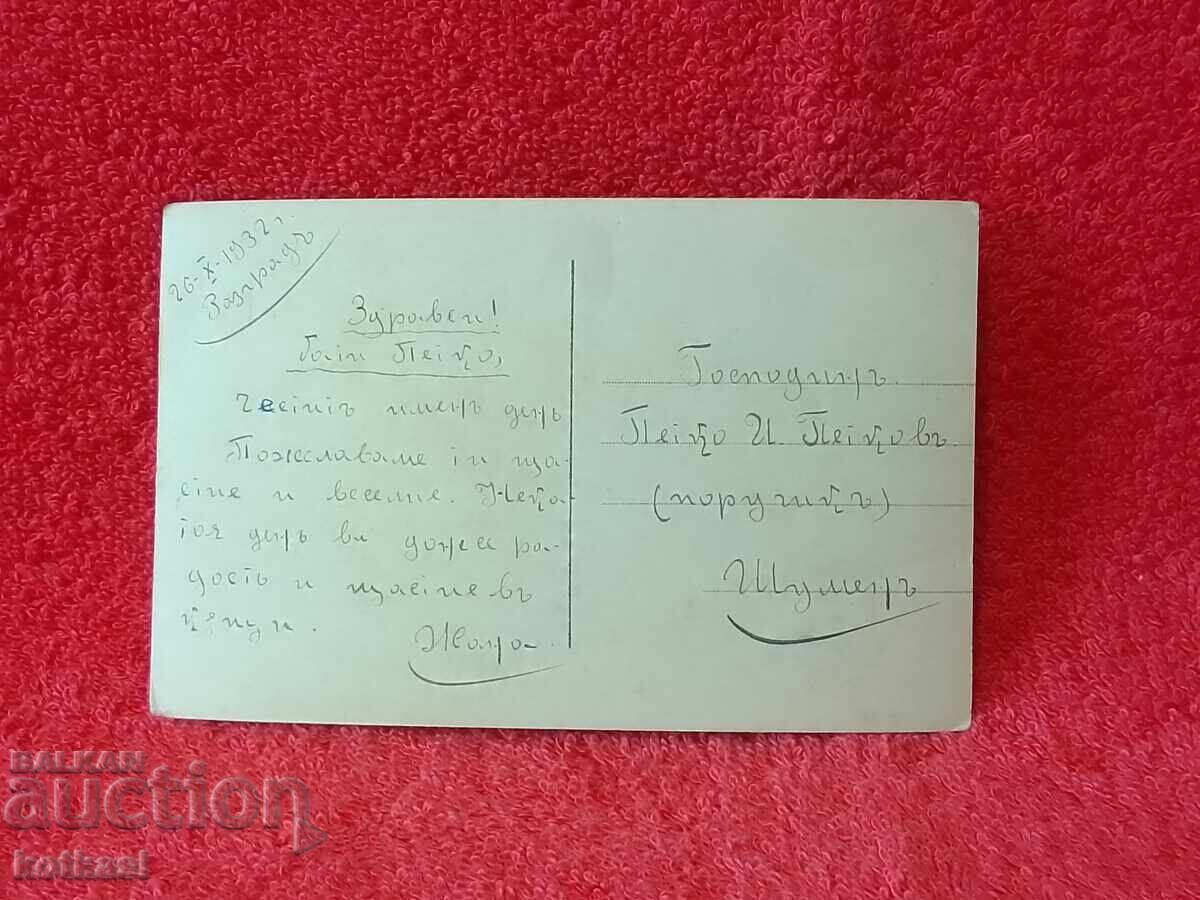 26-X-1932 г.
Разградъ
Здравей!
Бати Пейко,
Честитъ именъ день
Пожелаваме ти ща-
стие и веселие. Нека
тоя день ви донесе ра-
дость и щастие въ
кѫщи.
Жана.
Господинъ
Пейко И. Пейковъ.
(поручикъ)
Шуменъ
BALKAN
auction
kotkael